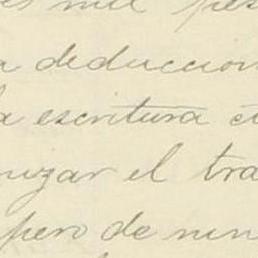 es mil pes
a deduccion
a escritura
nizar el tra
pero de nin